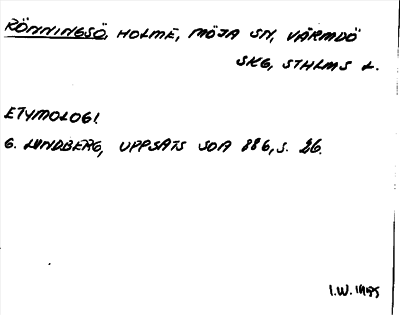 RÖNNINGSÖ, HOLME, MÖJA SN, VÄRMDÖ
SKG, STHLMS L.
ETYMOLOGI
G. LUNDBERG, UPPSATS SOA 886, S. 26.
I.W. 1975